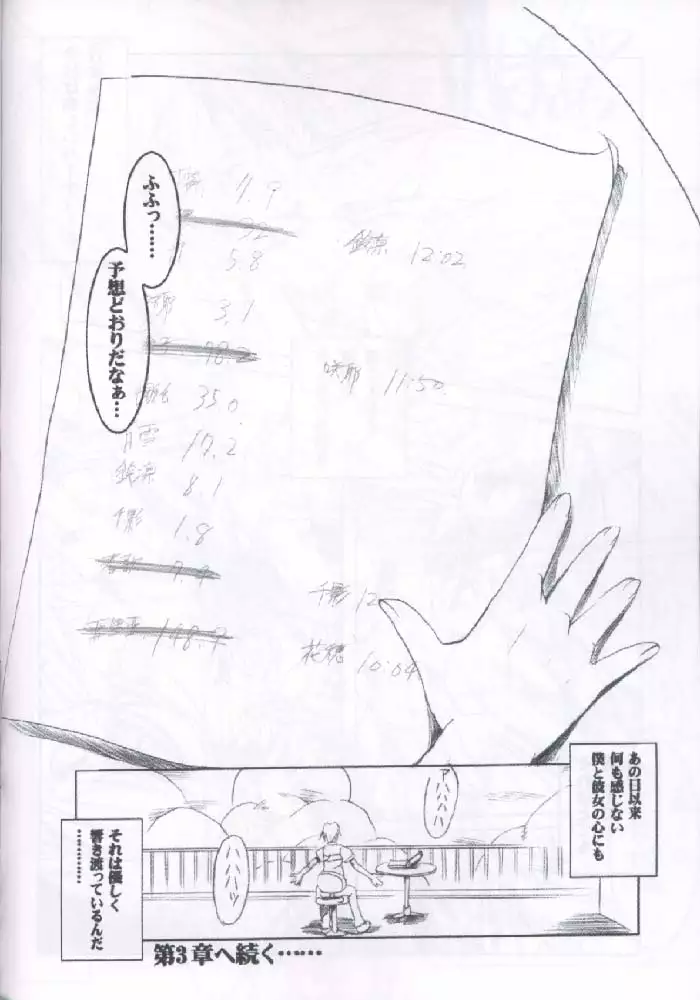 ふふっ……
予想どおりだなぁ…
7.9
92
5.8
3.1
78.2
35.0
17.2
鈴凛
8.1
千影
1.8
鈴凛 12:02
咲耶 11:50
千影 12
花穂 10:04
あの日以来
何も感じない
僕と彼女の心にも
アハハハハ
ハハハハッ
それは優しく
響き渡っているんだ
…………
第3章へ続く……